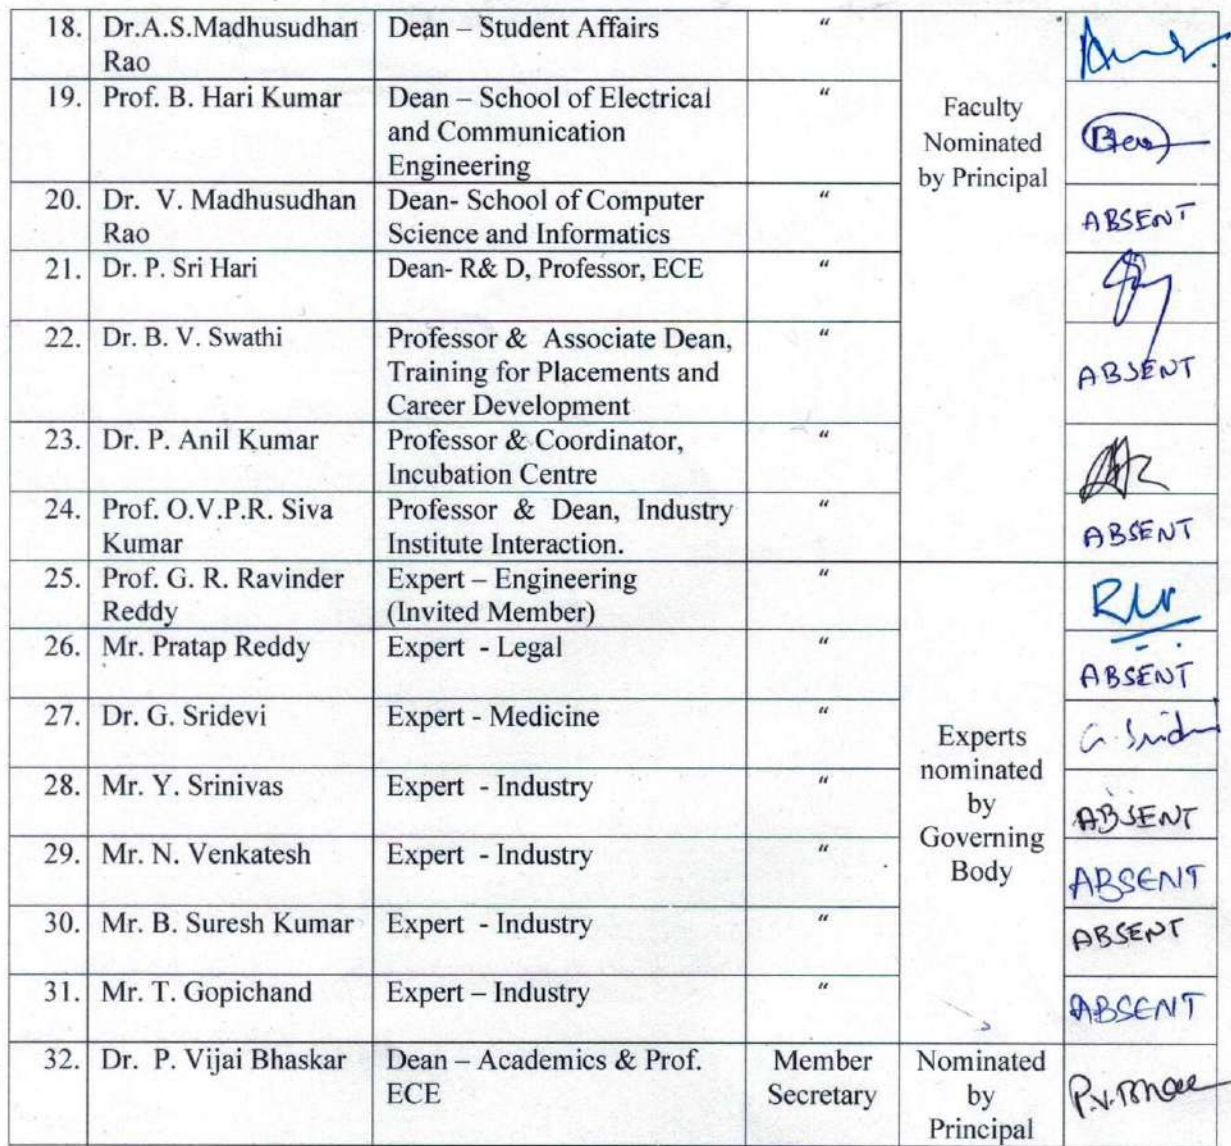 18. Dr.A.S.Madhusudhan Rao Dean – Student Affairs "
19. Prof. B. Hari Kumar Dean – School of Electrical and Communication Engineering " Faculty Nominated by Principal
20. Dr. V. Madhusudhan Rao Dean- School of Computer Science and Informatics " ABSENT
21. Dr. P. Sri Hari Dean- R& D, Professor, ECE "
22. Dr. B. V. Swathi Professor & Associate Dean, Training for Placements and Career Development " ABSENT
23. Dr. P. Anil Kumar Professor & Coordinator, Incubation Centre "
24. Prof. O.V.P.R. Siva Kumar Professor & Dean, Industry Institute Interaction. " ABSENT
25. Prof. G. R. Ravinder Reddy Expert – Engineering (Invited Member) "
26. Mr. Pratap Reddy Expert - Legal " ABSENT
27. Dr. G. Sridevi Expert - Medicine " Experts nominated by Governing Body
28. Mr. Y. Srinivas Expert - Industry " ABSENT
29. Mr. N. Venkatesh Expert - Industry " ABSENT
30. Mr. B. Suresh Kumar Expert - Industry " ABSENT
31. Mr. T. Gopichand Expert – Industry " ABSENT
32. Dr. P. Vijai Bhaskar Dean – Academics & Prof. ECE Member Secretary Nominated by Principal